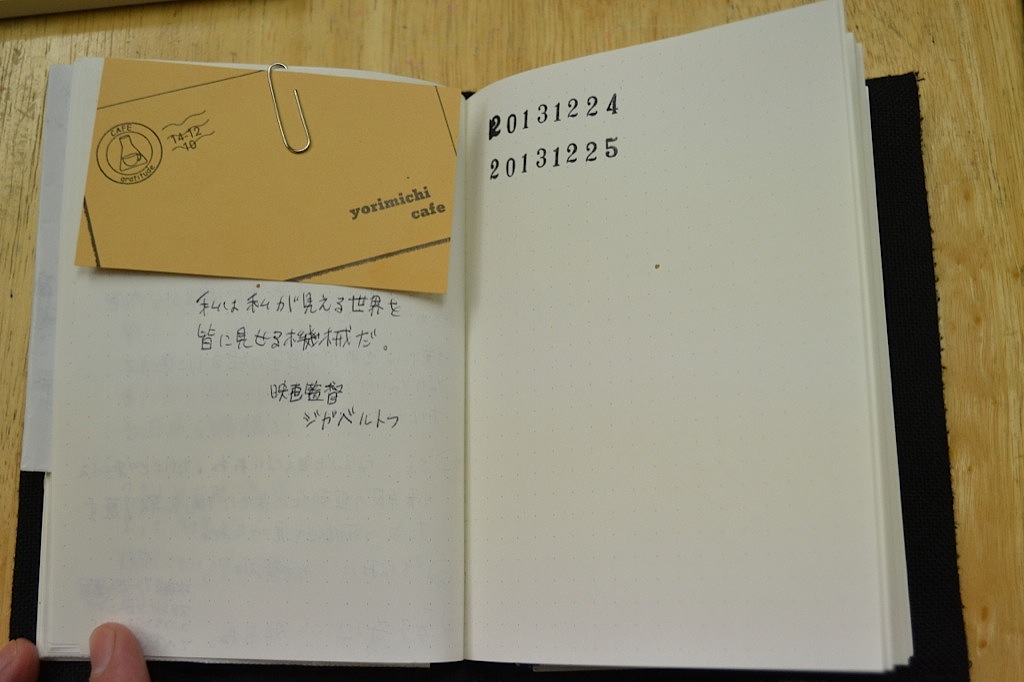 CAFE
gratitude
14-12
10
yorimichi
cafe
私は私が見える世界を
皆に見せる機械だ。
映画監督
ジガベルトフ
20131224
20131225